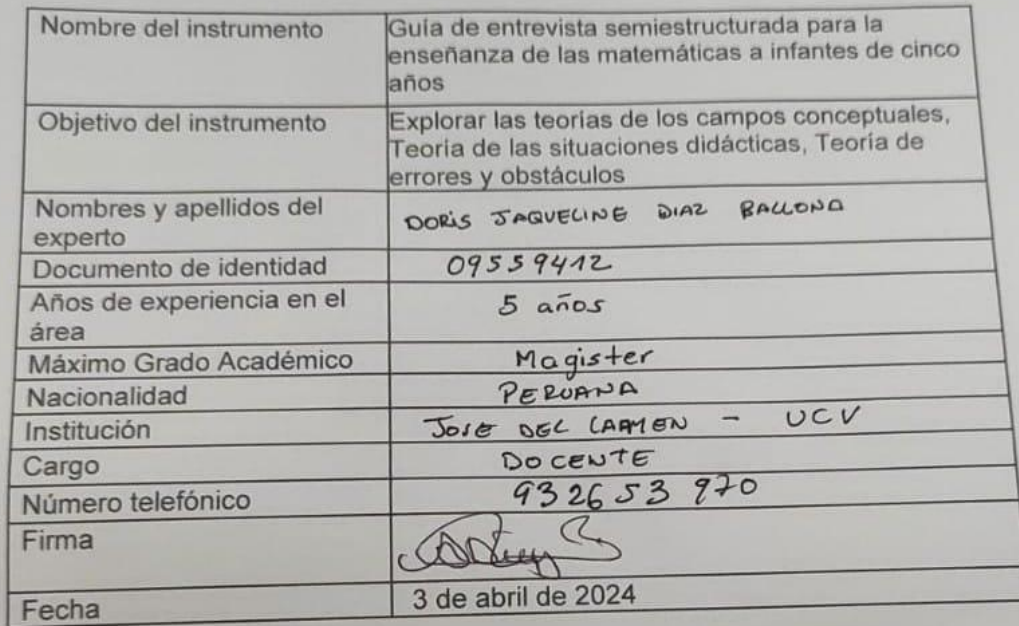 Nombre del instrumento
Guía de entrevista semiestructurada para la
enseñanza de las matemáticas a infantes de cinco
años
Objetivo del instrumento
Explorar las teorías de los campos conceptuales,
Teoría de las situaciones didácticas, Teoría de
errores y obstáculos
Nombres y apellidos del
experto
DORIS JAQUELINE DIAZ BALLONA
Documento de identidad
09559412
Años de experiencia en el
área
5 años
Máximo Grado Académico
Magister
Nacionalidad
PERUANA
Institución
JOSE DEL CARMEN - UCV
Cargo
DOCENTE
Número telefónico
932653970
Firma
Fecha
3 de abril de 2024